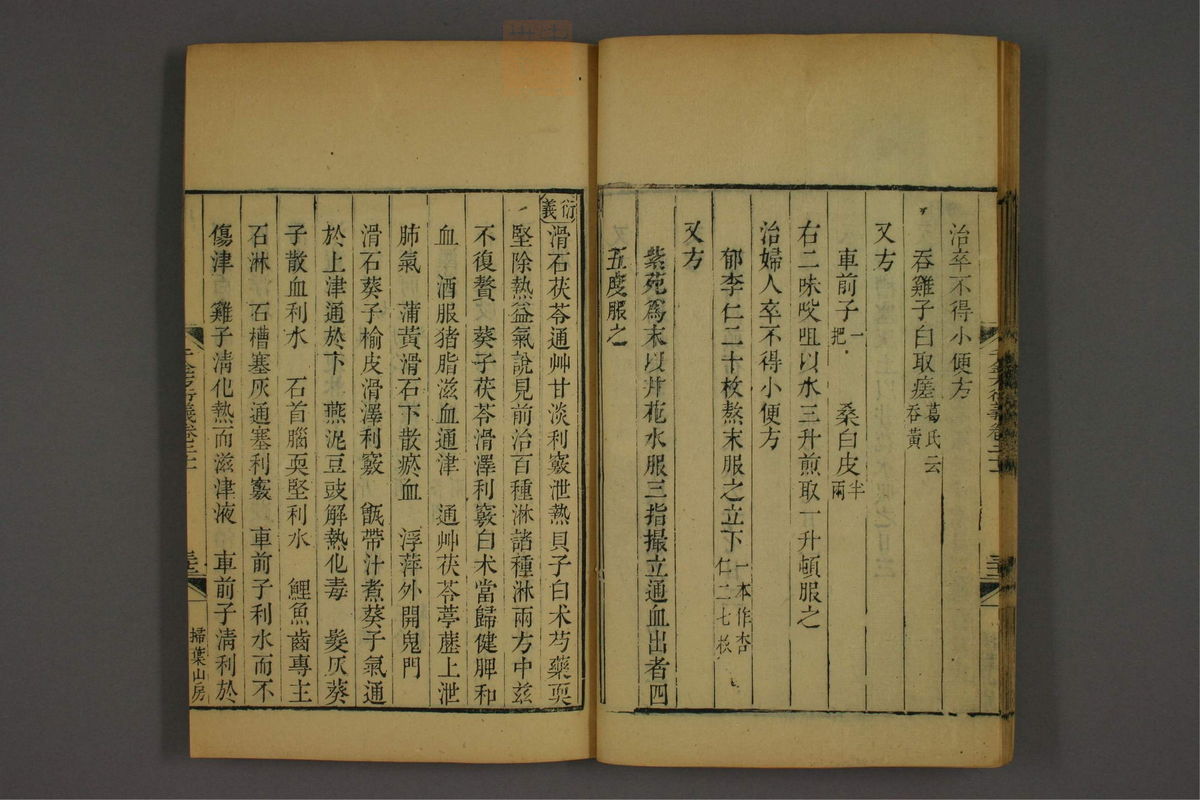 治卒不得小便方
吞雞子白取瘥葛氏云吞黃
又方
車前子一把 桑白皮半兩
右二味㕮咀以水三升煎取一升頓服之
治婦人卒不得小便方
郁李仁二十枚熬末服之立下一本作杏仁二七枚
又方
紫菀爲末以井花水服三指撮立通血出者四
五度服之
衍義
滑石茯苓通艸甘淡利竅泄熱貝子白朮芍藥耎
堅除熱益氣說見前治百種淋諸種淋兩方中兹
不復贅 葵子茯苓滑澤利竅白朮當歸健脾和
血 酒服猪脂滋血通津 通艸茯苓葶藶上泄
肺氣 蒲黃滑石下散瘀血 浮萍外開鬼門
滑石葵子榆皮滑澤利竅 甑帶汁煮葵子氣通
於上津通於下 燕泥豆豉解熱化毒 髮灰葵
子散血利水 石首腦耎堅利水 鯉魚齒專主
石淋 石槽塞灰通塞利竅 車前子利水而不
傷津 雞子清化熱而滋津液 車前子清利於
掃葉山房